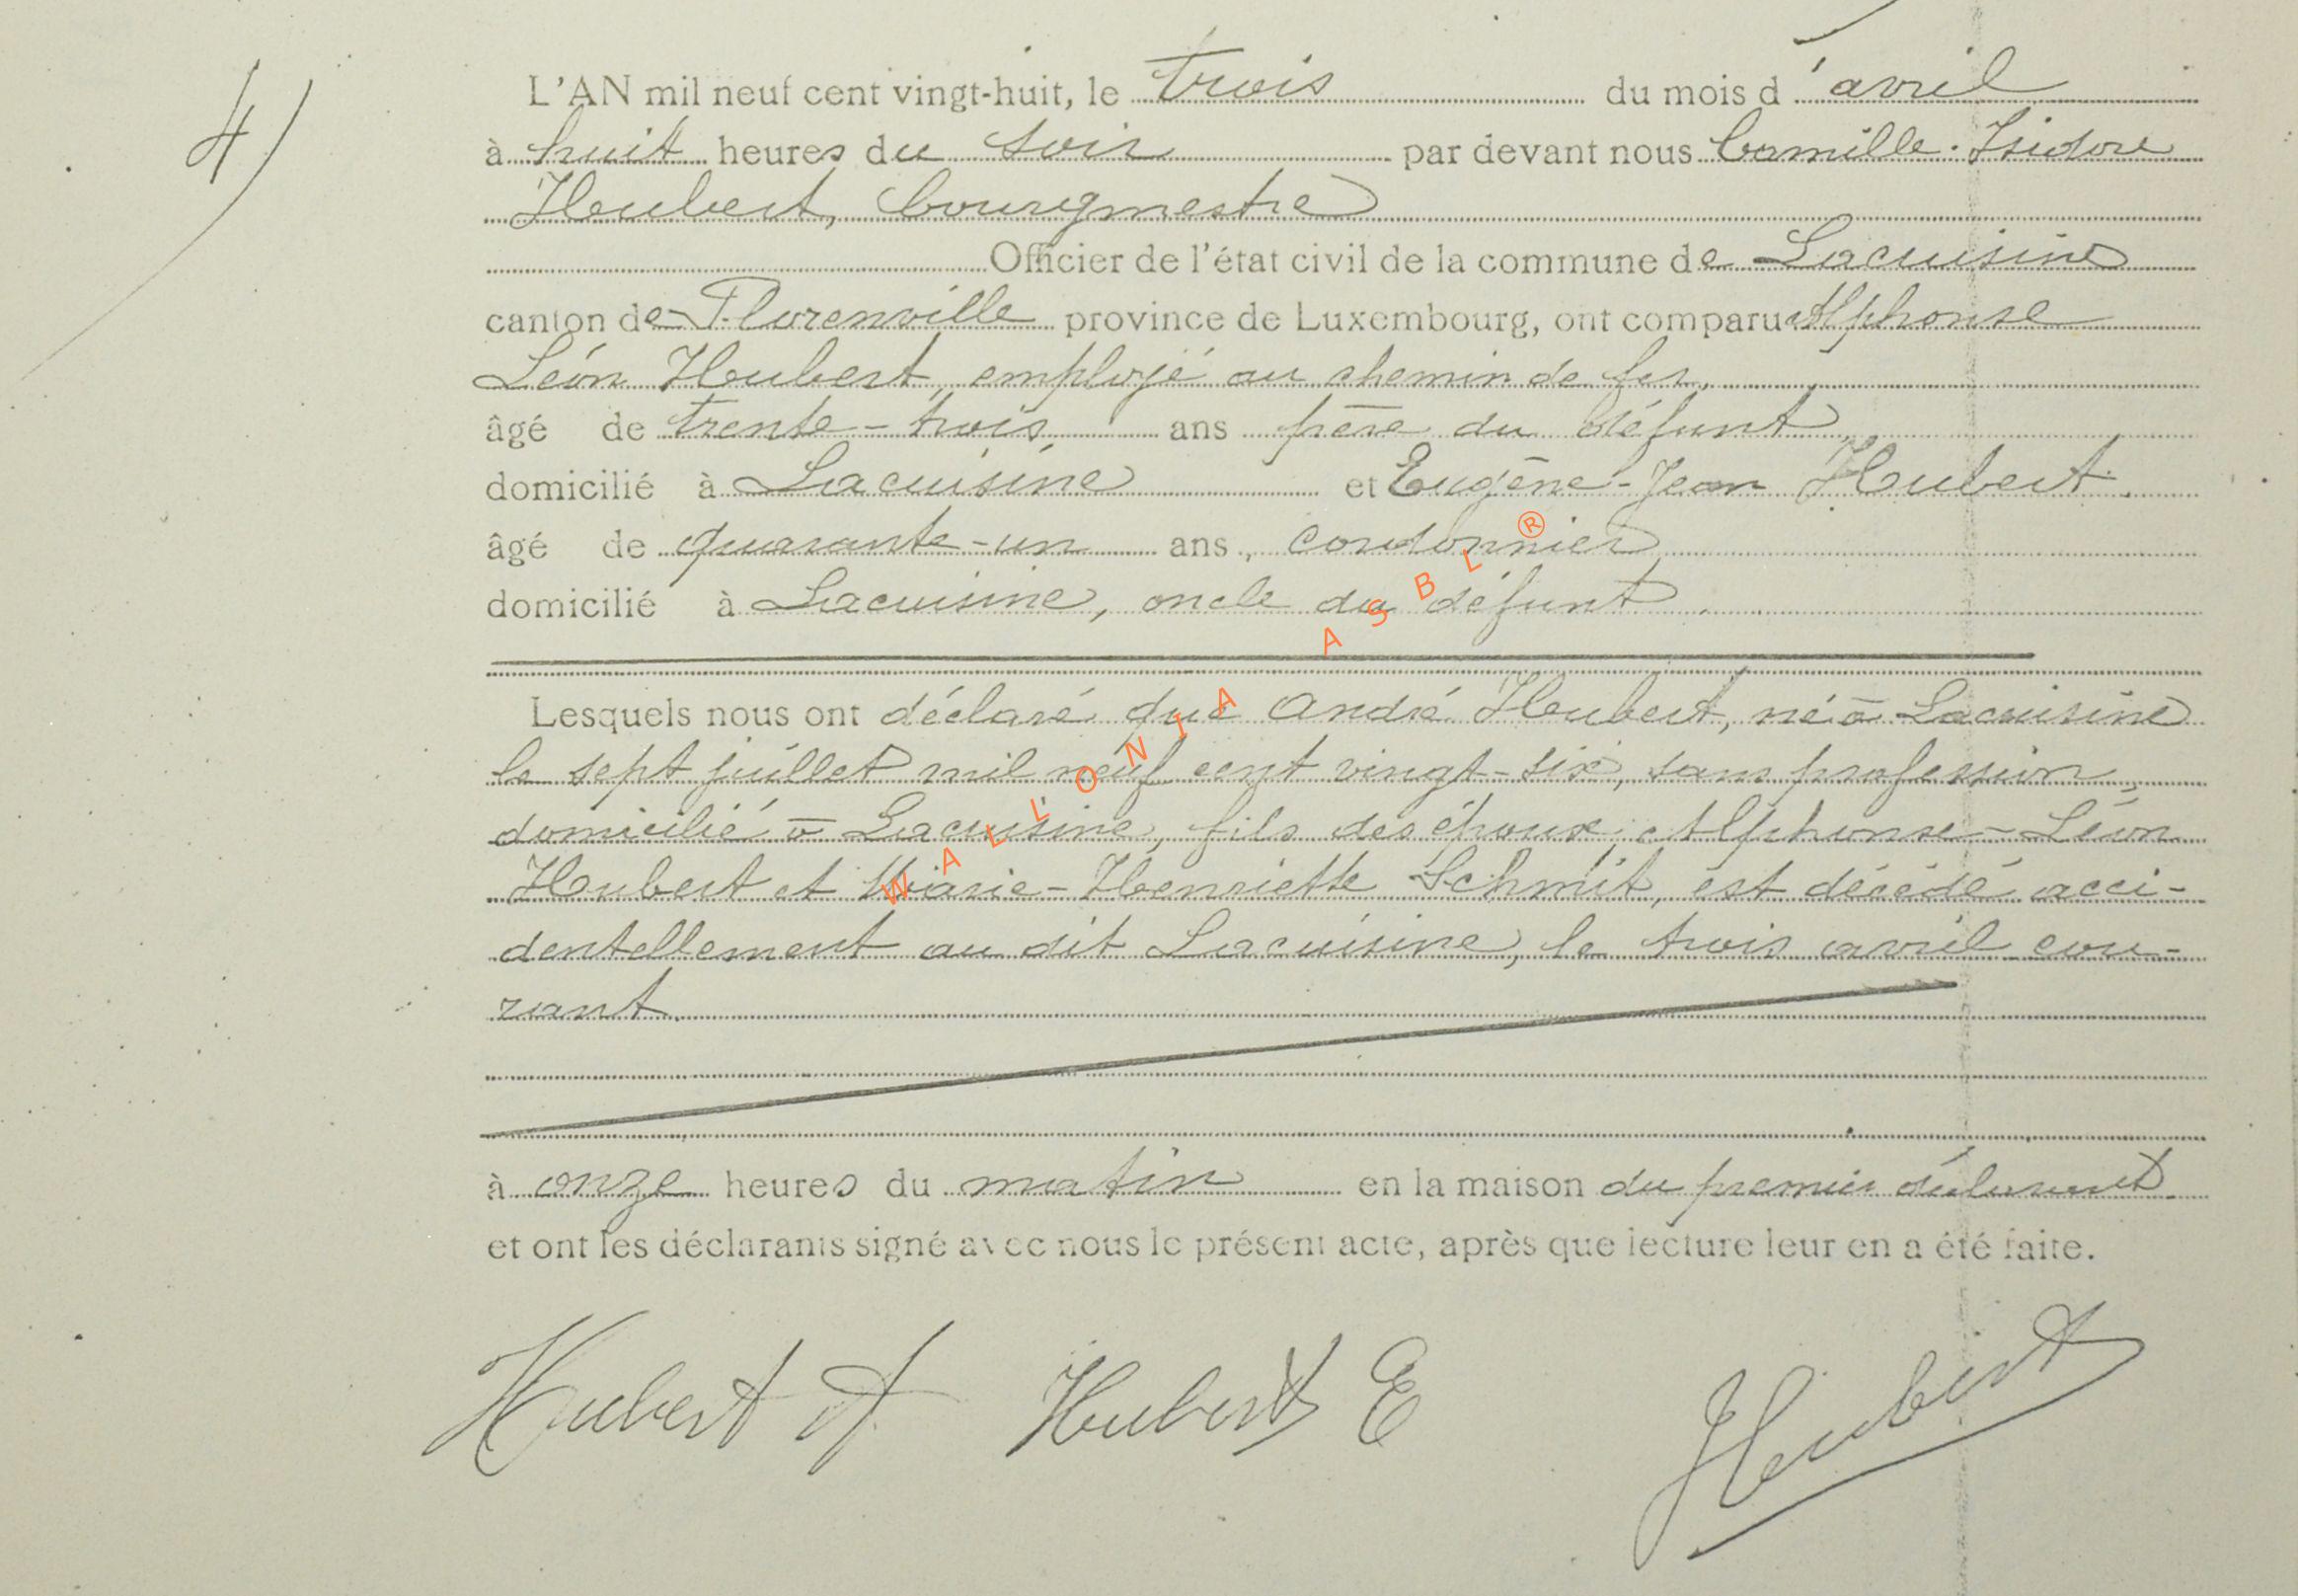 4)
L'AN mil neuf cent vingt-huit, le trois du mois d'avril
à huit heures du soir par devant nous Camille-Isidore
Hubert, bourgmestre
Officier de l'état civil de la commune de Lacuisine
canton de Florenville province de Luxembourg, ont comparu Alphonse
Léon Hubert, employé au chemin de fer,
âgé de trente-trois ans père du défunt,
domicilié à Lacuisine et Eugène-Jean Hubert.
âgé de quarante-un ans, cordonnier
domicilié à Lacuisine, oncle du défunt.
Lesquels nous ont déclaré que André Hubert, né à Lacuisine
le sept juillet mil neuf cent vingt-six, sans profession,
domicilié à Lacuisine, fils des époux Alphonse-Léon
Hubert et Marie-Henriette Schmit, est décédé acci-
dentellement au dit Lacuisine, le trois avril cou-
rant.
à onze heures du matin en la maison du premier déclarant.
et ont les déclarants signé avec nous le présent acte, après que lecture leur en a été faite.
Hubert A Hubert E Hubert
WALLONIA ASBL ®